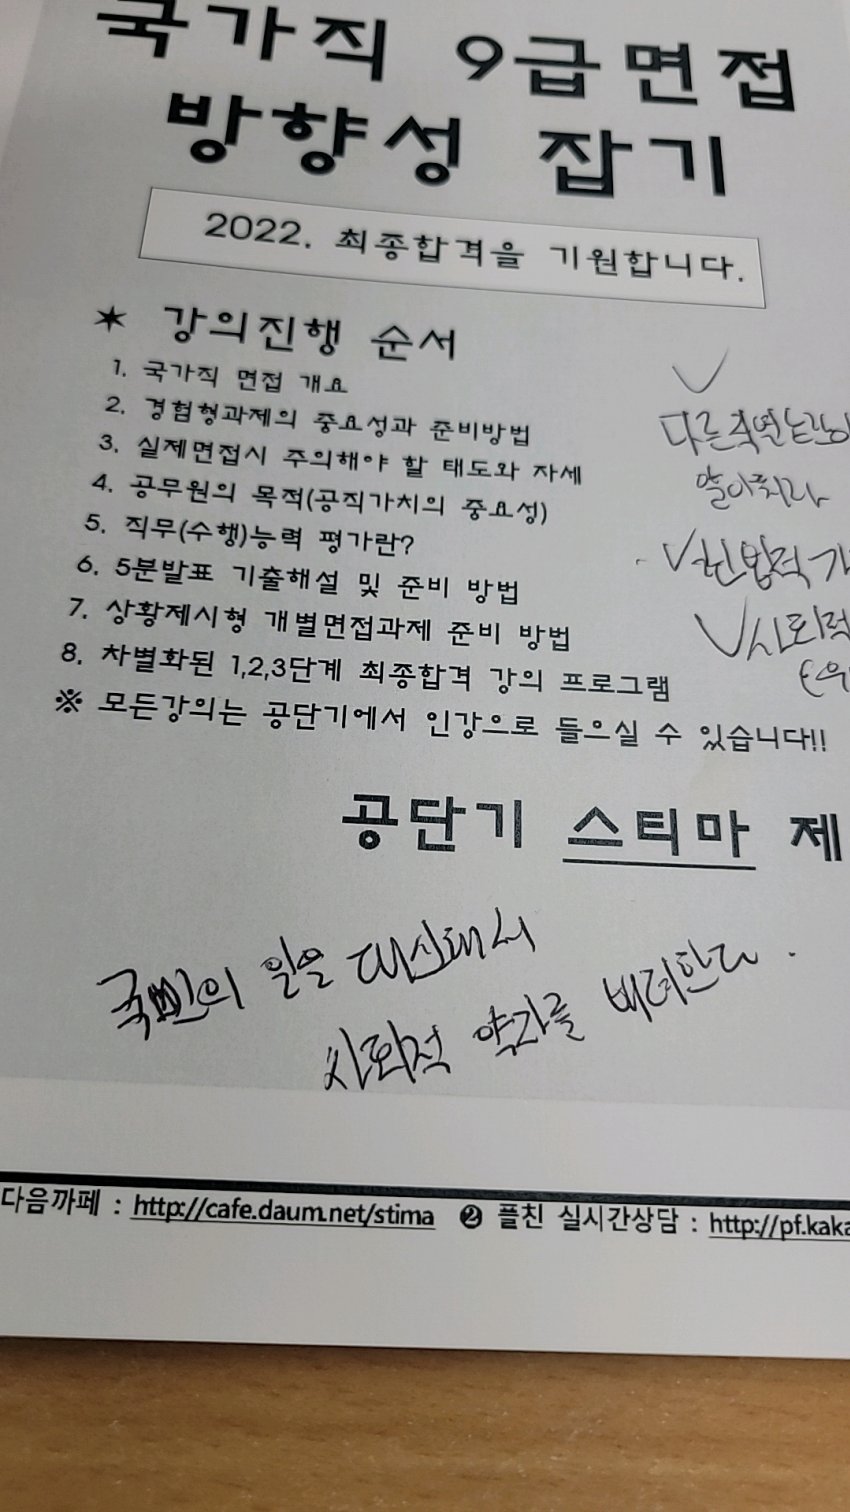 국가직 9급면접
방향성 잡기
2022. 최종합격을 기원합니다.
✶ 강의진행 순서
1. 국가직 면접 개요
2. 경험형과제의 중요성과 준비방법
3. 실제면접시 주의해야 할 태도와 자세
4. 공무원의 목적(공직가치의 중요성)
5. 직무(수행)능력 평가란?
6. 5분발표 기출해설 및 준비 방법
7. 상황제시형 개별면접과제 준비 방법
8. 차별화된 1,2,3단계 최종합격 강의 프로그램
※ 모든강의는 공단기에서 인강으로 들으실 수 있습니다!!
다른
사회적
공단기 스티마 제
국민의 일을 대신해서
사회적 약자를 배려한다.
다음까페 : http://cafe.daum.net/stima ❷ 플친 실시간상담 : http://pf.kaka